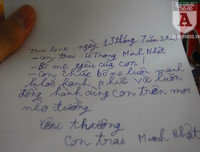 ngày 13 tháng 7 năm
- Con trai: Lê Trọng Minh Nhật
- Bố mẹ yêu của con!
- Con chúc bố mẹ luôn mạnh
khỏe hạnh phúc và luôn
đồng hành cùng con trên mọi
nẻo đường
Yêu thương
Con trai
Minh Nhật
A